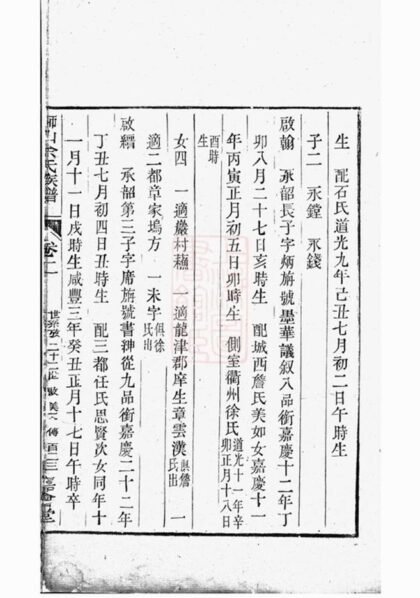 生　配石氏道光九年己丑七月初二日午時生
子二　永鏜　永錢
啟翰　承韶長子字炳旂號墨華議叙八品銜嘉慶十二年丁
卯八月二十七日亥時生　配城西詹氏美如女嘉慶十一
年丙寅正月初五日卯時生　側室衢州徐氏道光十一年辛
卯正月十八日
酉時
生
女四　一適巖村　一適龍津郡庠生章雲漢俱詹
氏出　一
適二都章家塢方　一未字俱徐
氏出
啟縉　承韶第三子字席旂號書紳從九品銜嘉慶二十二年
丁丑七月初四日丑時生　配三都任氏思賢次女同年十
一月十一日戌時生咸豐三年癸丑正月十七日午時卒
余氏族譜　卷二